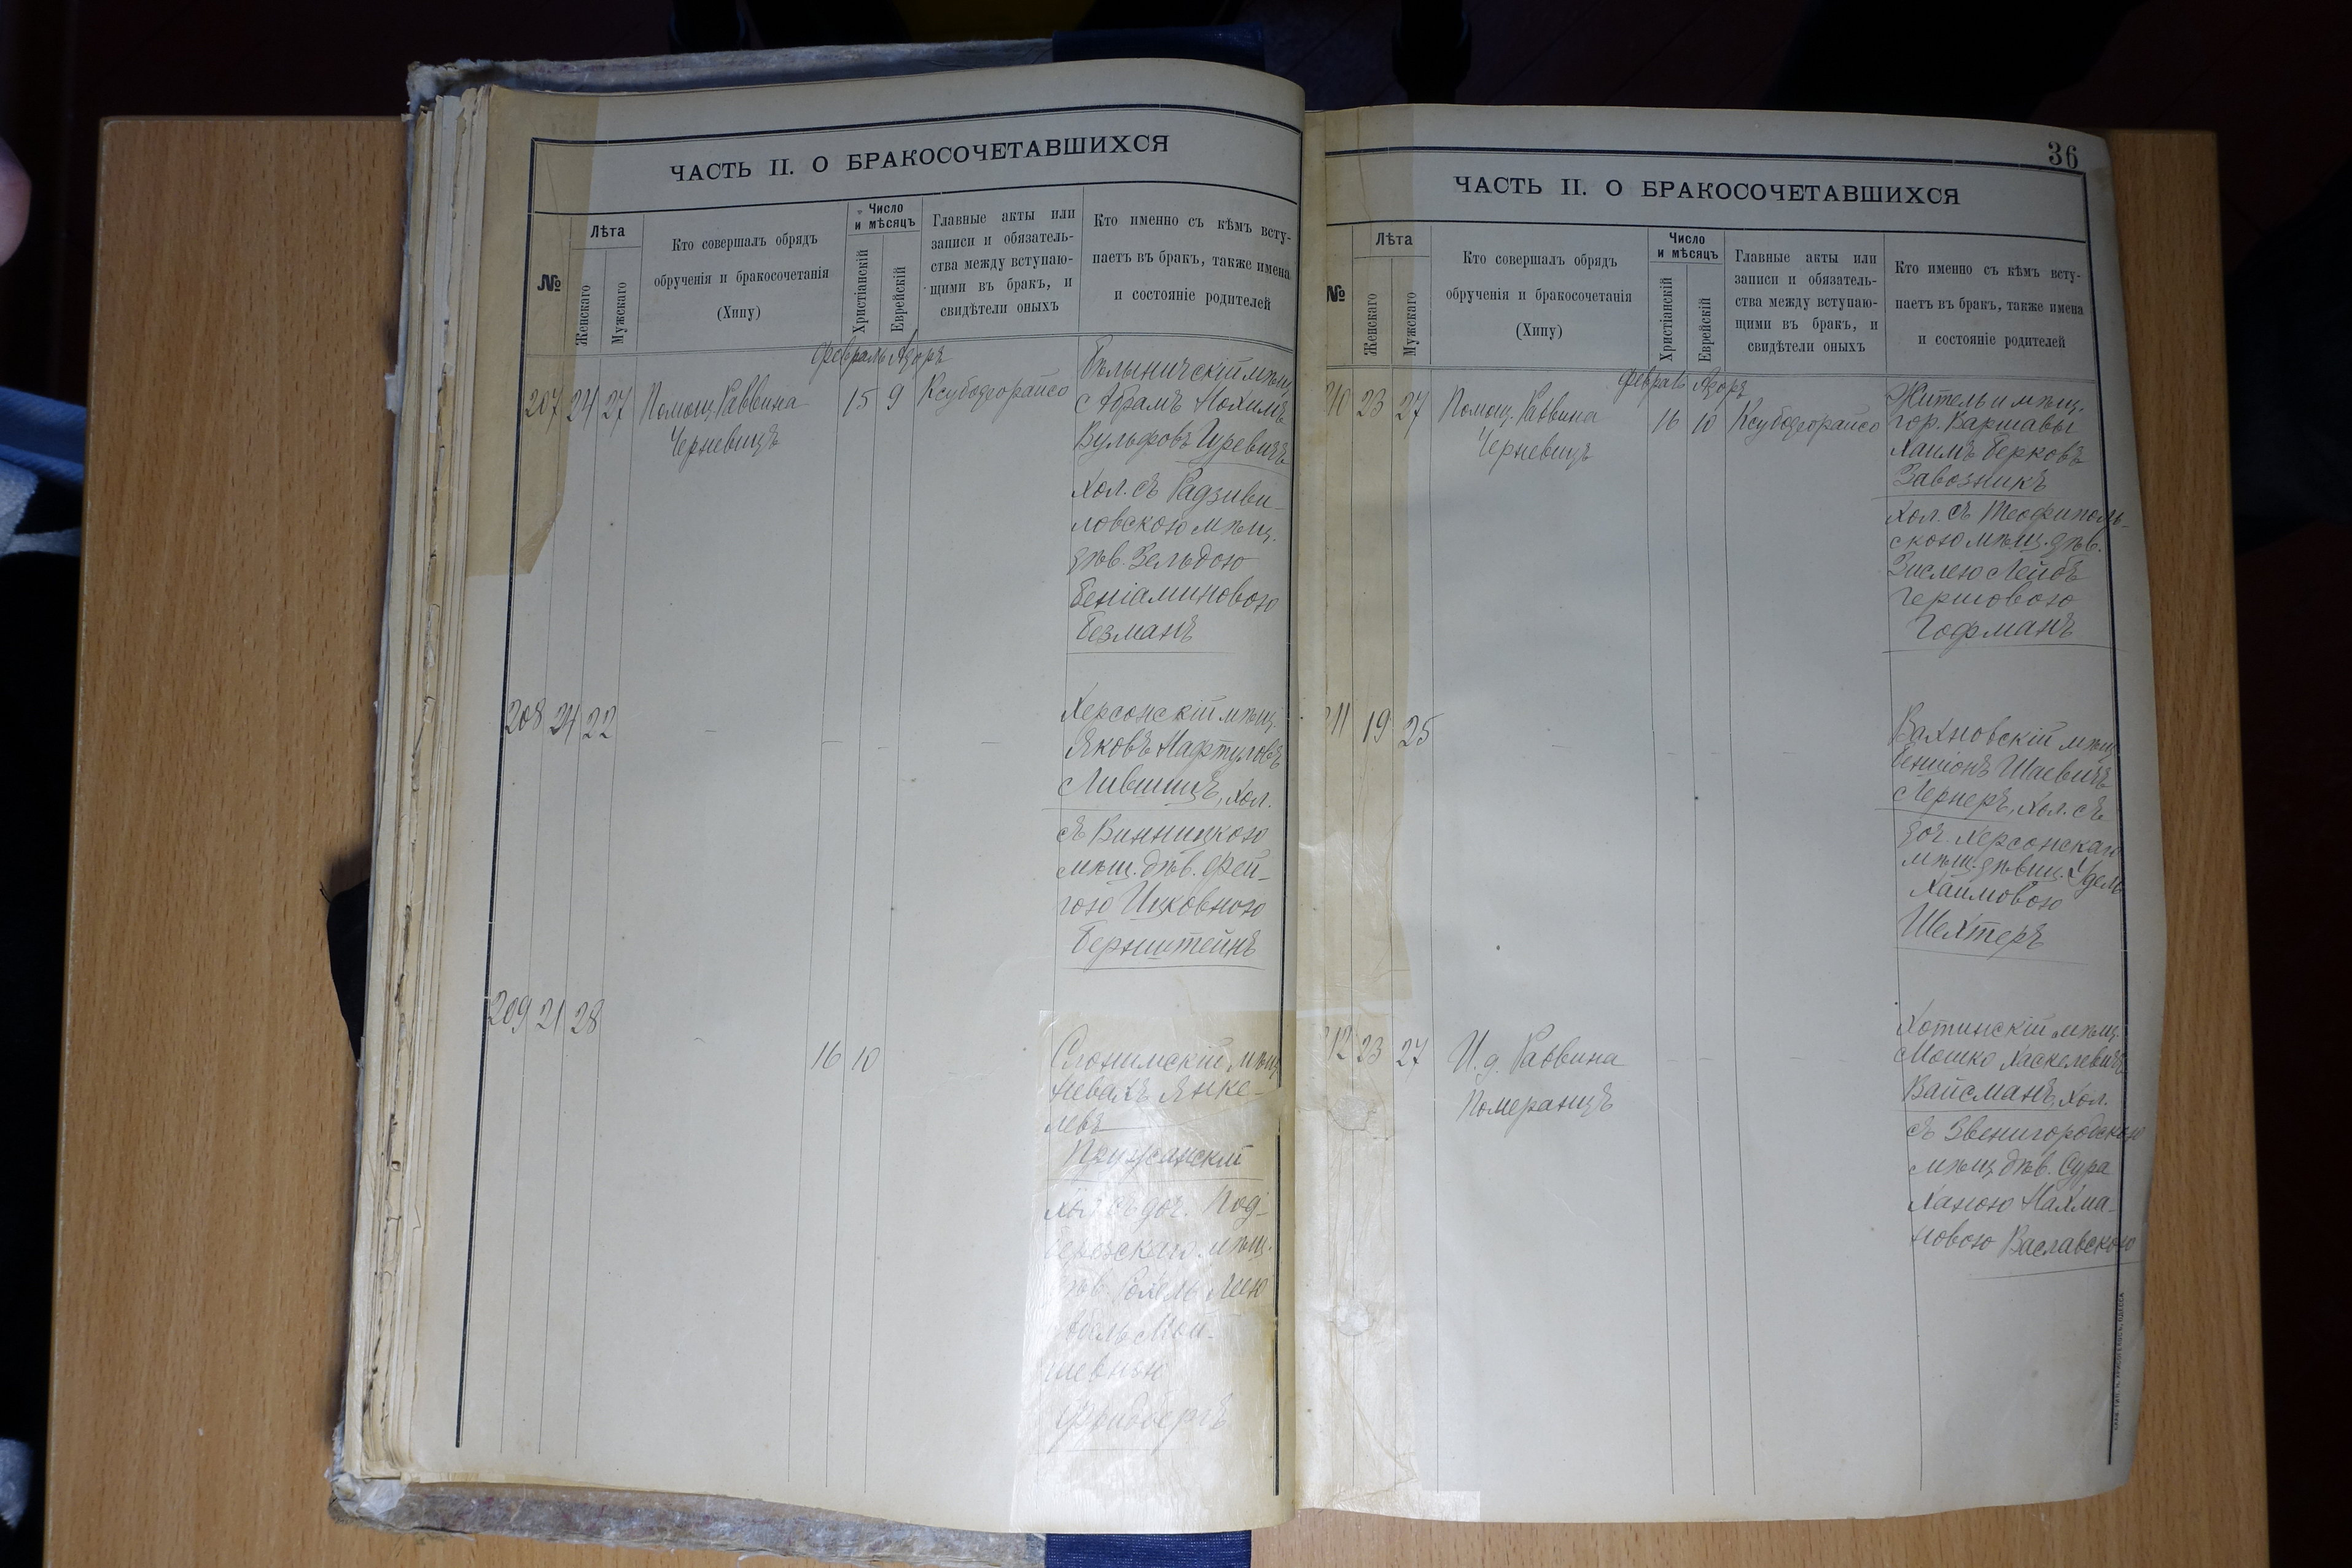 ЧАСТЬ II. О БРАКОСОЧЕТАВШИХСЯ
№
Лѣта
Женскаго
Мужскаго
Кто совершалъ обрядъ
обрученія и бракосочетанія
(Хипу)
Число
и мѣсяцъ
Христіанскій
Еврейскій
Главные акты или
записи и обязатель-
ства между вступаю-
щими въ бракъ, и
свидѣтели оныхъ
Кто именно съ кѣмъ всту-
паетъ въ бракъ, также имена
и состояніе родителей
Февраль Адоръ
207 24 27 Помощ. Раввина
Черневицъ
15 9
Бѣлыничскій мѣщ.
Абрамъ Нохимъ
Вульфовъ Гуревичъ
хол. съ Радзиви-
ловскою мѣщ.
дѣв. Зельдою
Беніаминовою
Безманъ
208 24 22 — — — —
Херсонскій мѣщ.
Яковъ Нафтуловъ
Лившицъ, хол.
съ Винницкою
мѣщ. дѣв. Фей-
гою Ицковною
Бернштейнъ
209 21 28 — 16 10
Слонимскій мѣщ.
Невахъ Янке-
левъ
Пружанскій
хол. съ доч. Под-
березскаго мѣщ.
дѣв.
шевною
Фридбергъ
36
ЧАСТЬ II. О БРАКОСОЧЕТАВШИХСЯ
№
Лѣта
Женскаго
Мужскаго
Кто совершалъ обрядъ
обрученія и бракосочетанія
(Хипу)
Число
и мѣсяцъ
Христіанскій
Еврейскій
Главные акты или
записи и обязатель-
ства между вступаю-
щими въ бракъ, и
свидѣтели оныхъ
Кто именно съ кѣмъ всту-
паетъ въ бракъ, также имена
и состояніе родителей
Февраль Адоръ
210 23 27 Помощ. Раввина
Черневицъ
16 10
Житель и мѣщ.
гор. Варшавы
Хаимъ Берковъ
Завозникъ
хол. съ Теофиполь-
скою мѣщ. дѣв.
Лейбъ
Гершовою
Гофманъ
211 19 25 — — — —
Вахновскій мѣщ.
Бенціонъ Шаевичъ
Лернеръ, хол. съ
доч. Херсонскаго
мѣщ. дѣвиц. Удель
Хаимовою
Шехтеръ
212 23 27 И. д. Раввина
Померанцъ
— — —
Хотинскій мѣщ.
Мошко Хаскелевичъ
Вайсманъ, хол.
съ Звенигородскою
мѣщ. дѣв. Сура
Ханою Нахма-
новою Ваславскою